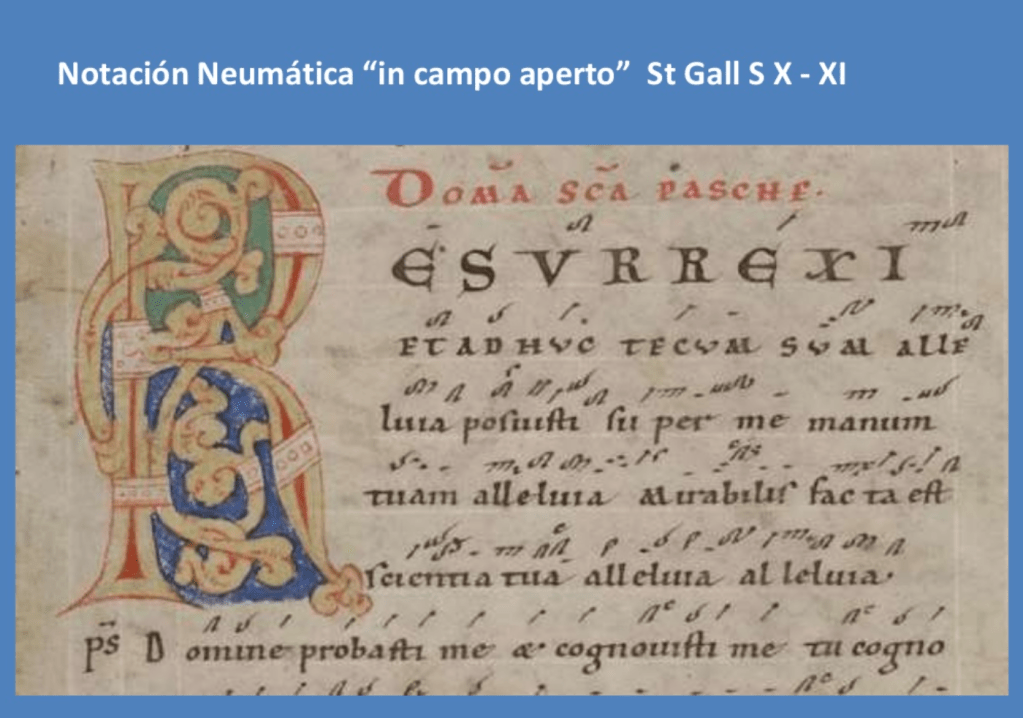 Notación Neumática “in campo aperto” St Gall S X - XI
DOMA SCA PASCHE.
RESURREXI
ET AD HVC TECVM SVM ALLE
luia posuisti su per me manum
tuam alleluia Mirabilis fac ta est
scientia tua alleluia al leluia.
ps Domine probasti me & cognouisti me tu cogno